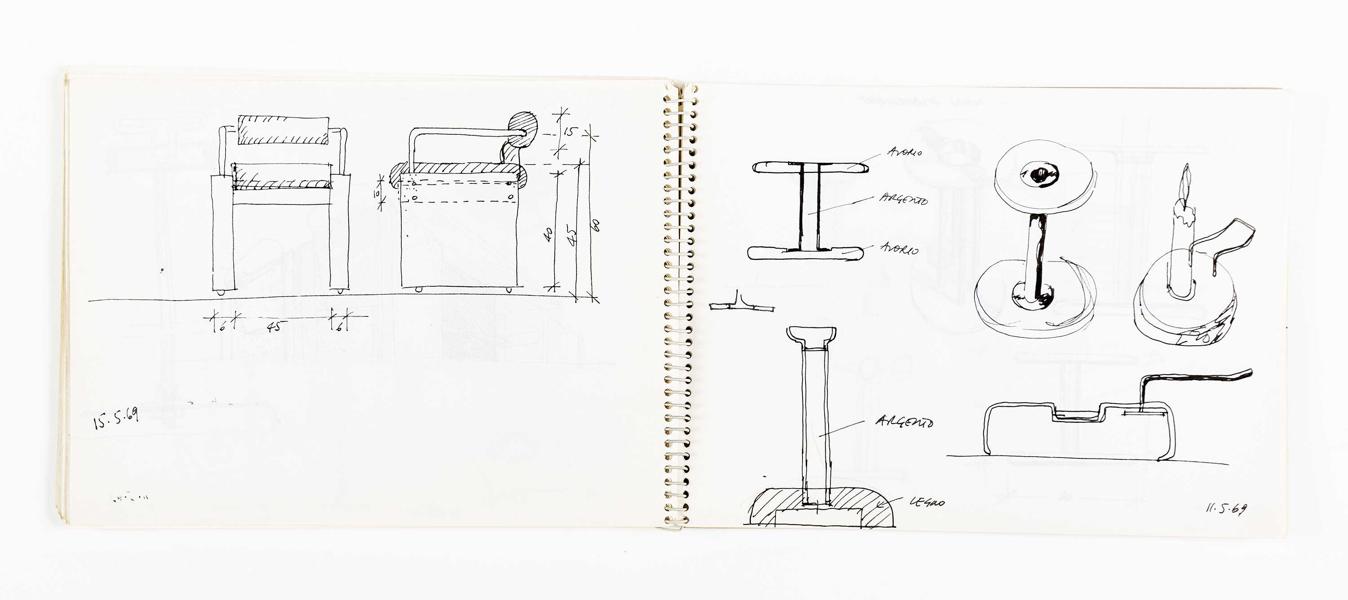 15
10
40
45
60
6 45 6
15.5.69
AVORIO
ARGENTO
AVORIO
ARGENTO
LEGNO
11.5.69